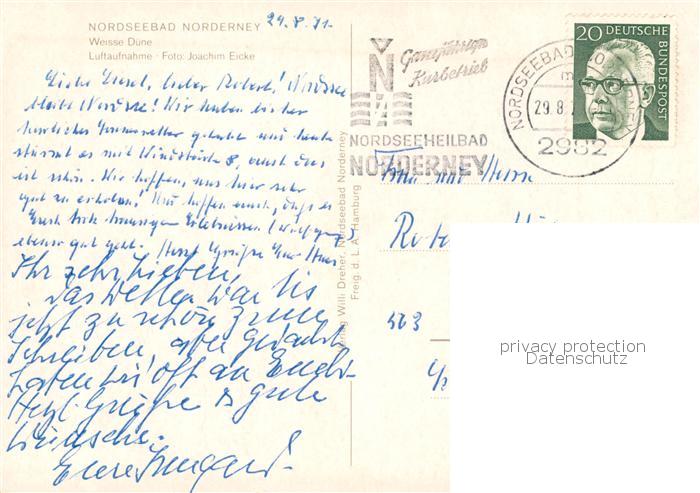 NORDSEEBAD NORDERNEY
Weisse Düne
Luftaufnahme · Foto: Joachim Eicke
29.8.71
Liebe Gusel, lieber Robert! Nordsee
bleibt Nordsee! Wir haben bisher
herrliches Sommerwetter gehabt und heute
stürmt es mit Windstärke 8, auch das
ist schön. Wir hoffen, uns hier sehr
gut zu erholen. Und hoffen auch, daß es
Euch trotz traurigen Erlebnissen
ebenso gut geht. Herzl. Grüße Euer Hans
Ihr sehr Lieben,
das Wetter war bis
jetzt zu schön zum
Schreiben, aber gedacht
haben wir oft an Euch!
Herzl. Grüße & gute
Wünsche.
Eure Irmgard.
Verlag Willi Dreher, Nordseebad Norderney
Freig. d. L. A. Hamburg
Ganzjähriger
Kurbetrieb
N
NORDSEEHEILBAD
NORDERNEY
NORDSEEBAD NORDERNEY
m
29.8.7
2982
20 DEUTSCHE
BUNDESPOST
Frau und Herrn
563
privacy protection
Datenschutz